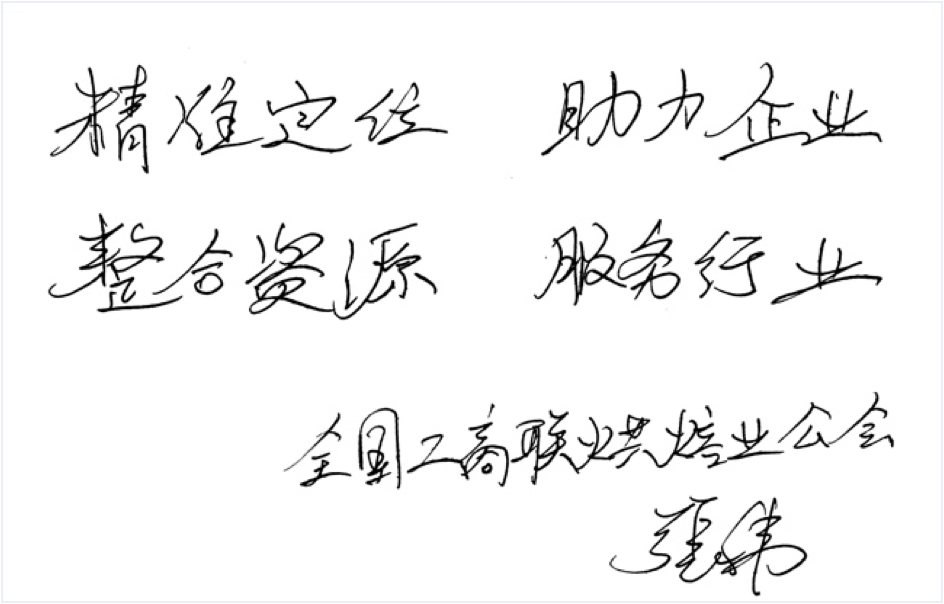 精准定位 助力企业
整合资源 服务行业
全国工商联烘焙业公会